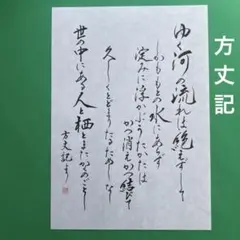 方丈記
ゆく河の流れは絶えずして
しかももとの水にあらず
淀みに浮かぶうたかたは
かつ消えかつ結びて
久しくとどまりたるためしなし
世の中にある人と栖とまたかくのごとし
方丈記より